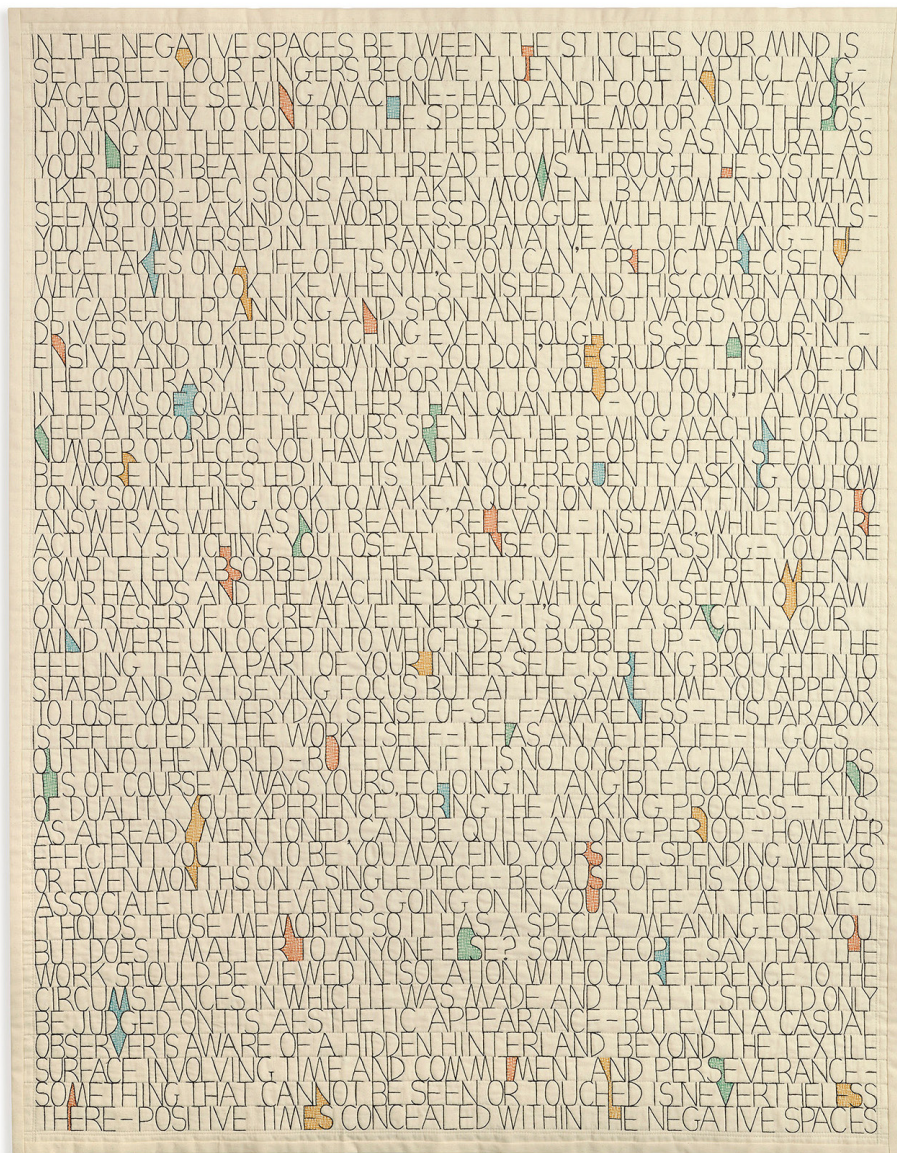 IN THE NEGATIVE SPACES BETWEEN THE STITCHES YOUR MIND IS
SET FREE – YOUR FINGERS BECOME FLUENT IN THE HAPTIC LANG-
UAGE OF THE SEWING MACHINE – HAND AND FOOT AND EYE WORK
IN HARMONY TO CONTROL THE SPEED OF THE MOTOR AND THE POS-
ITIONING OF THE NEEDLE UNTIL THE RHYTHM FEELS AS NATURAL AS
YOUR HEARTBEAT AND THE THREAD FLOWS THROUGH THE SYSTEM
LIKE BLOOD – DECISIONS ARE TAKEN MOMENT BY MOMENT IN WHAT
SEEMS TO BE A KIND OF WORDLESS DIALOGUE WITH THE MATERIALS –
YOU ARE IMMERSED IN THE TRANSFORMATIVE ACT OF MAKING – THE
PIECE TAKES ON A LIFE OF ITS OWN – YOU CAN'T PREDICT PRECISELY
WHAT IT WILL LOOK LIKE WHEN IT'S FINISHED AND THIS COMBINATION
OF CAREFUL PLANNING AND SPONTANEITY MOTIVATES YOU AND
DRIVES YOU TO KEEP STITCHING EVEN THOUGH IT IS SO LABOUR-INT-
ENSIVE AND TIME-CONSUMING – YOU DON'T BEGRUDGE THIS TIME – ON
THE CONTRARY IT IS VERY IMPORTANT TO YOU BUT YOU THINK OF IT
IN TERMS OF QUALITY RATHER THAN QUANTITY – YOU DON'T ALWAYS
KEEP A RECORD OF THE HOURS SPENT AT THE SEWING MACHINE OR THE
NUMBER OF PIECES YOU HAVE MADE – OTHER PEOPLE OFTEN SEEM TO
BE MORE INTERESTED IN THIS THAN YOU, FREQUENTLY ASKING YOU HOW
LONG SOMETHING TOOK TO MAKE, A QUESTION YOU MAY FIND HARD TO
ANSWER AS WELL AS NOT REALLY RELEVANT – INSTEAD, WHILE YOU ARE
ACTUALLY STITCHING YOU LOSE ALL SENSE OF TIME PASSING – YOU ARE
COMPLETELY ABSORBED IN THE REPETITIVE INTERPLAY BETWEEN
YOUR HANDS AND THE MACHINE DURING WHICH YOU SEEM TO DRAW
ON A RESERVE OF CREATIVE ENERGY – IT'S AS IF A SPACE IN YOUR
MIND WERE UNLOCKED INTO WHICH IDEAS BUBBLE UP – YOU HAVE THE
FEELING THAT A PART OF YOUR INNER SELF IS BEING BROUGHT INTO
SHARP AND SATISFYING FOCUS BUT AT THE SAME TIME YOU APPEAR
TO LOSE YOUR EVERYDAY SENSE OF SELF-AWARENESS – THIS PARADOX
IS REFLECTED IN THE WORK ITSELF – IT HAS AN AFTERLIFE – IT GOES
OUT INTO THE WORLD – BUT EVEN IF IT IS NO LONGER ACTUALLY YOURS
IT IS OF COURSE ALWAYS YOURS, ECHOING IN TANGIBLE FORM THE KIND
OF DUALITY YOU EXPERIENCE DURING THE MAKING PROCESS – THIS,
AS ALREADY MENTIONED, CAN BE QUITE A LONG PERIOD – HOWEVER
EFFICIENT YOU TRY TO BE, YOU MAY FIND YOURSELF SPENDING WEEKS
OR EVEN MONTHS ON A SINGLE PIECE – BECAUSE OF THIS YOU TEND TO
ASSOCIATE IT WITH EVENTS GOING ON IN YOUR LIFE AT THE TIME –
IT HOLDS THOSE MEMORIES SO IT HAS A SPECIAL MEANING FOR YOU
BUT DOES IT MATTER TO ANYONE ELSE? SOME PEOPLE SAY THAT THE
WORK SHOULD BE VIEWED IN ISOLATION WITHOUT REFERENCE TO THE
CIRCUMSTANCES IN WHICH IT WAS MADE AND THAT IT SHOULD ONLY
BE JUDGED ON ITS AESTHETIC APPEARANCE – BUT EVEN A CASUAL
OBSERVER IS AWARE OF A HIDDEN HINTERLAND BEYOND THE TEXTILE
SURFACE INVOLVING TIME AND COMMITMENT AND PERSEVERANCE –
SOMETHING THAT CANNOT BE SEEN OR TOUCHED IS NEVERTHELESS
THERE – POSITIVE TIMES CONCEALED WITHIN THE NEGATIVE SPACES